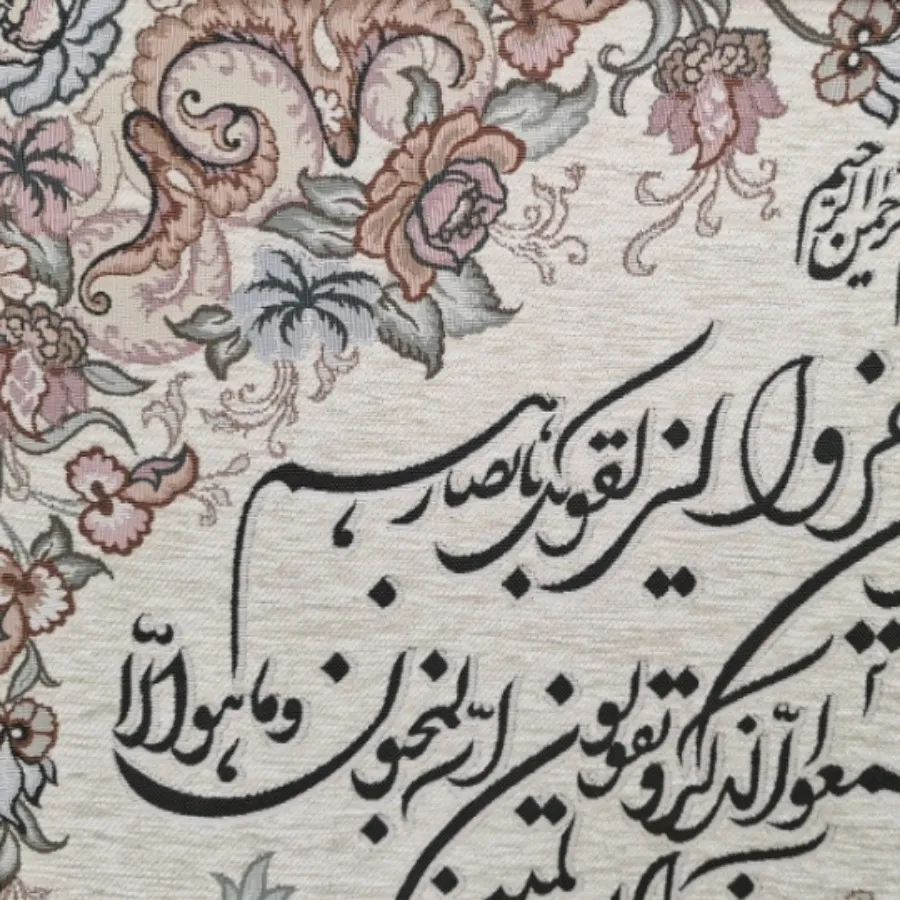 الرحیم
فروا لیزلقونک بابصارهم
معوا الذکر و یقولون انّه لمجنون و ما هو الّا
لمین